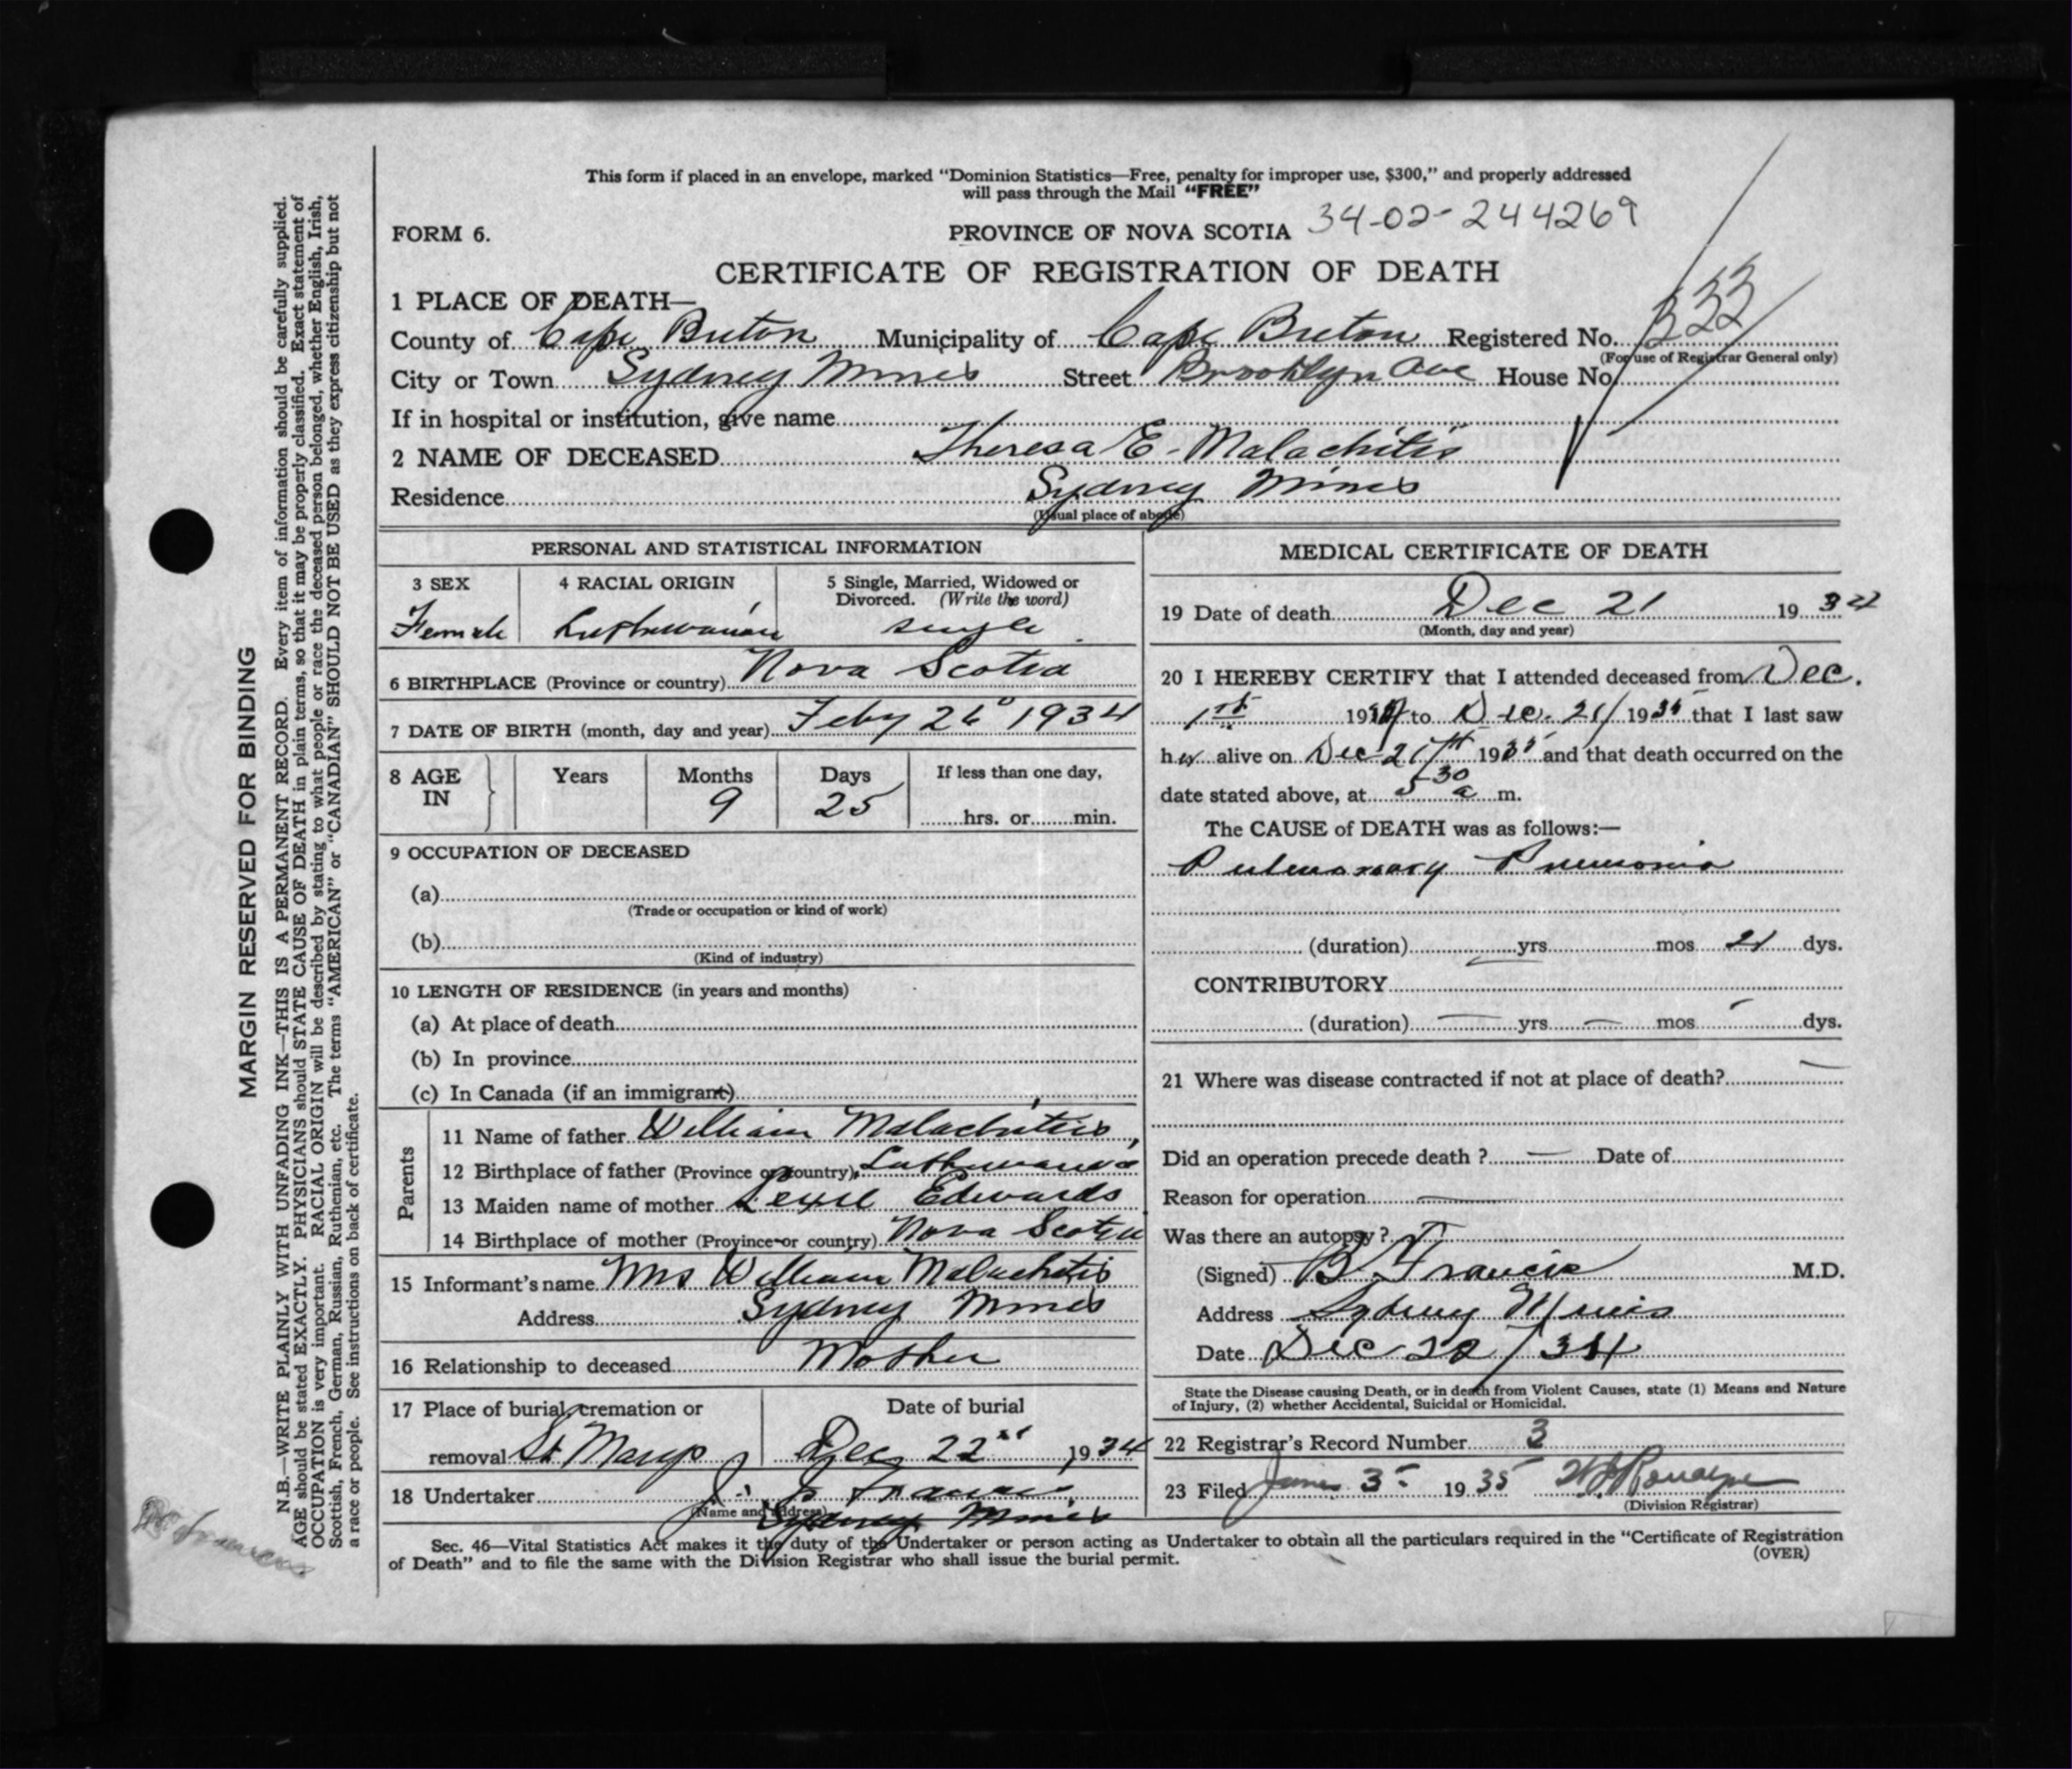 This form if placed in an envelope, marked "Dominion Statistics—Free, penalty for improper use, $300," and properly addressed
will pass through the Mail "FREE"
FORM 6.
PROVINCE OF NOVA SCOTIA 34-02-244269
CERTIFICATE OF REGISTRATION OF DEATH
1 PLACE OF DEATH—
County of Cape Breton Municipality of Cape Breton Registered No. 333
(For use of Registrar General only)
City or Town Sydney Mines Street Brooklyn Ave House No.
If in hospital or institution, give name
2 NAME OF DECEASED Theresa E. Malachitis
Residence Sydney Mines
(Usual place of abode)
PERSONAL AND STATISTICAL INFORMATION
3 SEX 4 RACIAL ORIGIN 5 Single, Married, Widowed or
Divorced. (Write the word)
Female Luthuwanian single
6 BIRTHPLACE (Province or country) Nova Scotia
7 DATE OF BIRTH (month, day and year) Feby 26 1934
8 AGE IN Years Months Days If less than one day,
9 25 hrs. or min.
9 OCCUPATION OF DECEASED
(a)
(Trade or occupation or kind of work)
(b)
(Kind of industry)
10 LENGTH OF RESIDENCE (in years and months)
(a) At place of death
(b) In province
(c) In Canada (if an immigrant)
Parents
11 Name of father William Malachitis
12 Birthplace of father (Province or country)
13 Maiden name of mother Edwards
14 Birthplace of mother (Province or country) Nova Scotia
15 Informant's name Mrs William Malachitis
Address Sydney Mines
16 Relationship to deceased Mother
17 Place of burial, cremation or Date of burial
removal St Marys Dec 22 1934
18 Undertaker J. J. Francis
(Name and address) Sydney Mines
MEDICAL CERTIFICATE OF DEATH
19 Date of death Dec 21 1934
(Month, day and year)
20 I HEREBY CERTIFY that I attended deceased from Dec.
1st 19 to Dec. 21 1935 that I last saw
her alive on Dec 21th 1935 and that death occurred on the
date stated above, at 5 30 a m.
The CAUSE of DEATH was as follows:—
Pulmonary Pneumonia
(duration) yrs mos 21 dys.
CONTRIBUTORY
(duration) — yrs — mos — dys.
21 Where was disease contracted if not at place of death? —
Did an operation precede death ? — Date of
Reason for operation —
Was there an autopsy ?
(Signed) B. Francis M.D.
Address Sydney Mines
Date Dec 22/34
State the Disease causing Death, or in death from Violent Causes, state (1) Means and Nature
of Injury, (2) whether Accidental, Suicidal or Homicidal.
22 Registrar's Record Number 3
23 Filed 3 1935
(Division Registrar)
Sec. 46—Vital Statistics Act makes it the duty of the Undertaker or person acting as Undertaker to obtain all the particulars required in the "Certificate of Registration
of Death" and to file the same with the Division Registrar who shall issue the burial permit.
(OVER)
MARGIN RESERVED FOR BINDING
N.B.—WRITE PLAINLY WITH UNFADING INK—THIS IS A PERMANENT RECORD. Every item of information should be carefully supplied.
AGE should be stated EXACTLY. PHYSICIANS should STATE CAUSE OF DEATH in plain terms, so that it may be properly classified. Exact statement of
OCCUPATION is very important. RACIAL ORIGIN will be described by stating to what people or race the deceased person belonged, whether English, Irish,
Scottish, French, German, Russian, Ruthenian, etc. The terms "AMERICAN" or "CANADIAN" SHOULD NOT BE USED as they express citizenship but not
a race or people. See instructions on back of certificate.